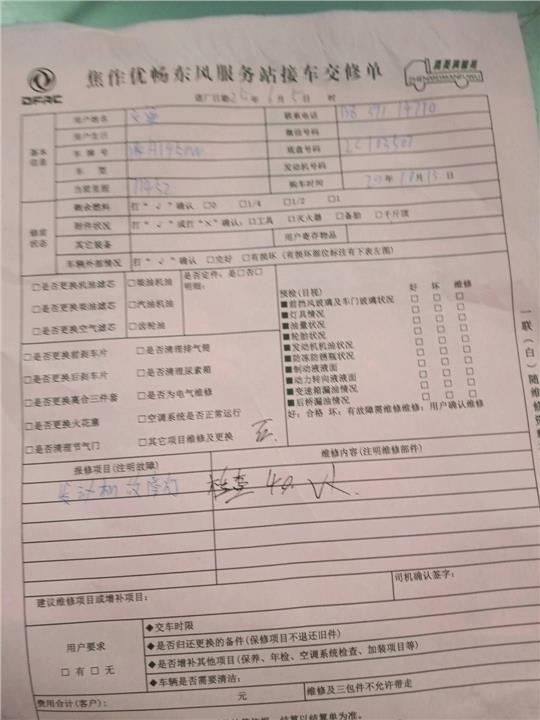 DFAC
焦作优畅东风服务站接车交修单
进厂日期 25 年 6 月 5 日 时
基本信息
用户姓名
联系电话
用户生日
微信号码
车牌号
底盘号码
车型
发动机号码
当前里程 71452
购车时间 年 11 月 13 日
修前状态
剩余燃料 打“√”确认 □0 □1/4 □1/2 □1
附件状况 打“√”或打“×”确认:□工具 □灭火器 □备胎 □千斤顶
其它装备
用户寄存物品
车辆外部情况 打“√”确认 □完好 □有损坏 (有损坏部位标注有下表左图)
□是否更换机油滤芯 □柴油机油
□是否更换柴油滤芯 □汽油机油
□是否更换空气滤芯 □齿轮油
是否定件,是□否□
明细:
□是否更换前刹车片 □是否清理排气筒
□是否更换后刹车片 □是否清理尿素箱
□是否更换离合三件套 □是否为电气维修
□是否更换火花塞 □空调系统是否正常运行
□是否清理节气门 □其它项目维修及更换
预检(目视) 好 坏 维修
■前挡风玻璃及车门玻璃状况 □ □ □
■灯具情况 □ □ □
■油量状况 □ □ □
■轮胎状况 □ □ □
■发动机机油状况 □ □ □
■防冻防锈瓶状况 □ □ □
■制动液液面 □ □ □
■动力转向液液面 □ □ □
■变速箱漏油情况 □ □ □
■后桥漏油情况 □ □ □
好:合格 坏:有故障需维修维修:用户确认维修
报修项目(注明故障)
维修内容(注明维修部件)
发动机故障灯
检查
建议维修项目或增补项目:
司机确认签字:
用户要求
□有 □无
◆交车时限
◆是否归还更换的备件(保修项目不退还旧件)
◆是否增补其他项目(保养、年检、空调系统检查、加装项目等)
◆车辆是否需要清洁:
费用合计(客户): 元
维修及三包件不允许带走
结算以结算单为准。
一联(白)随